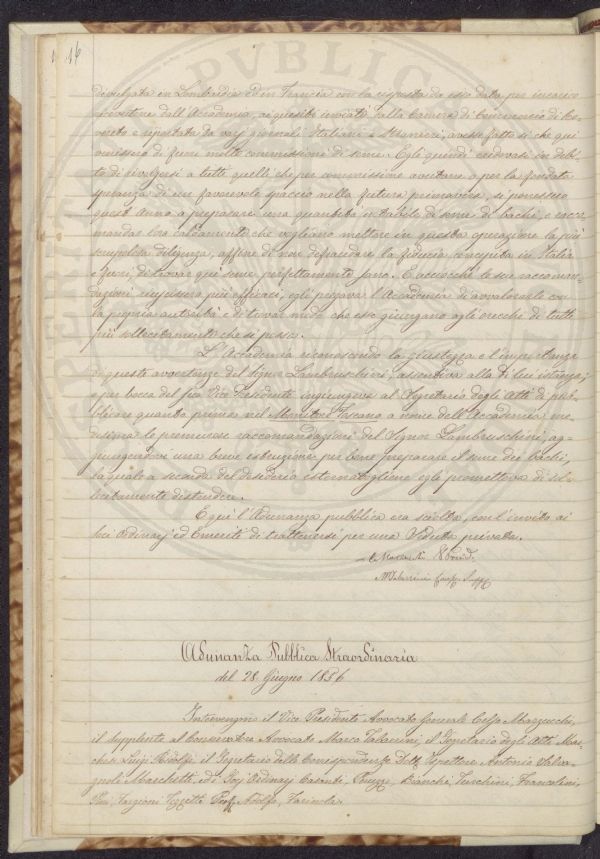 16
divulgata in Lombardia ed in Francia con la risposta da esso data per incarico
ricevutone dall'Accademia, ai quesiti inviati dalla Camera di Commercio di Ro-
vereto e riportata da varj giornali Italiani e Stranieri, avesse fatto sì che qui
venissero di fuori molte commissioni di seme. Egli quindi credevasi in deb-
to di rivolgersi a tutti quelli che per commissione avutane o per la fondata
speranza di un favorevole spaccio nella futura primavera, si ponessero
quest'anno a preparare una quantità notevole di seme di bachi, e racco-
mandar loro caldamente che vogliano mettere in questa operazione la più
scrupolosa diligenza, affine di non defraudare la fiducia concepita in Italia
e fuori di trovar qui seme perfettamente sano. E acciocchè le sue raccoman-
dazioni riuscissero più efficaci, egli pregava l'Accademia di avvalorarle con
la propria autorità e di trovar modo che esse giungano agli orecchi di tutti
più sollecitamente che si possa.
L'Accademia riconoscendo la giustezza e l'importanza
di queste avvertenze del Signor Lambruschini, assentiva alla di lui istanza;
e per bocca del suo Vice Presidente ingiungeva al Segretario degli Atti di pub-
blicare quanto prima nel Monitore Toscano a nome dell'Accademia me-
desima le premurose raccomandazioni del Signor Lambruschini, ag-
giungendovi una breve istruzione per bene preparare il seme dei bachi,
la quale a seconda del desiderio esternatogliene egli prometteva di sol-
lecitamente distendere.
E qui l'Adunanza pubblica era sciolta, con l'invito ai
Soci Ordinarj ed Emeriti di trattenersi per una Seduta privata.
V. Presid.
M Tabarrini Supp.
Adunanza Pubblica Straordinaria
del 28 Giugno 1856
Intervengono il Vice Presidente Avvocato Generale Celso Marzucchi,
il Supplente al Conservatore Avvocato Marco Tabarrini, il Segretario degli Atti Mar-
chese Luigi Ridolfi, il Segretario delle Corrispondenze Dott. Ispettore Antonio Salva-
gnoli Marchetti, ed i Socj Ordinarj Casanti, Bianchi, Turchini, Francolini,
Targioni Tozzetti Prof. Adolfo, Farinola.